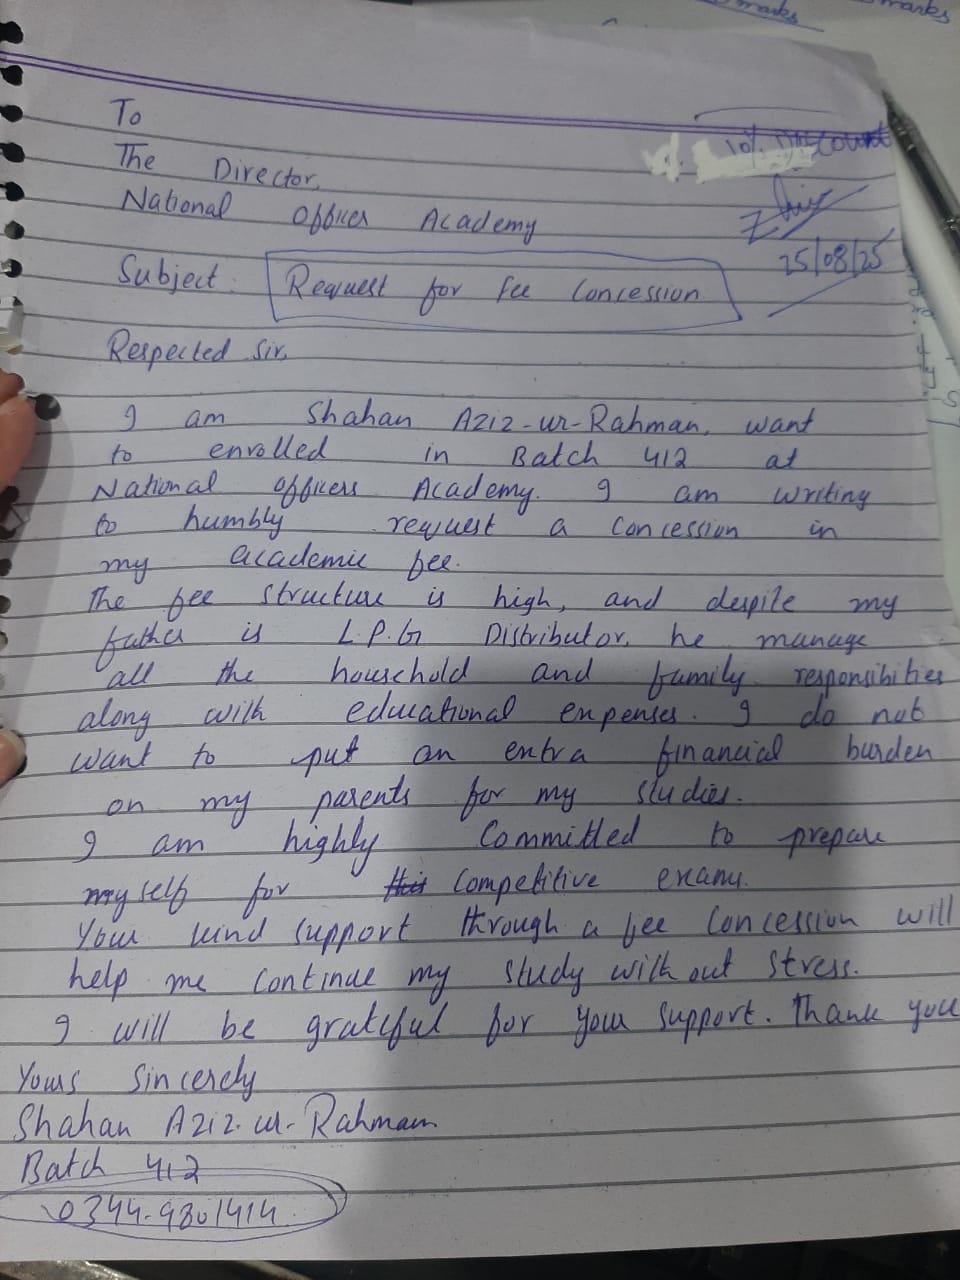 marks
marks
To
The Director,
National Officer Academy
10% Discount
25/08/25
Subject: Request for fee Concession
Respected Sir,
I am Shahan Aziz-ur-Rahman, want
to enrolled in Batch 412 at
National Officers Academy. I am writing
to humbly request a concession in
my academic fee.
The fee structure is high, and despite my
father is L.P.G Distributor, he manage
all the household and family responsibities
along with educational expenses. I do not
want to put an extra financial burden
on my parents for my studies.
I am highly committed to prepare
myself for this competitive exams.
Your kind support through a fee concession will
help me continue my study without stress.
I will be grateful for your support. Thank you
Yours Sincerely
Shahan Aziz-ur-Rahman
Batch 412
0344-9801414